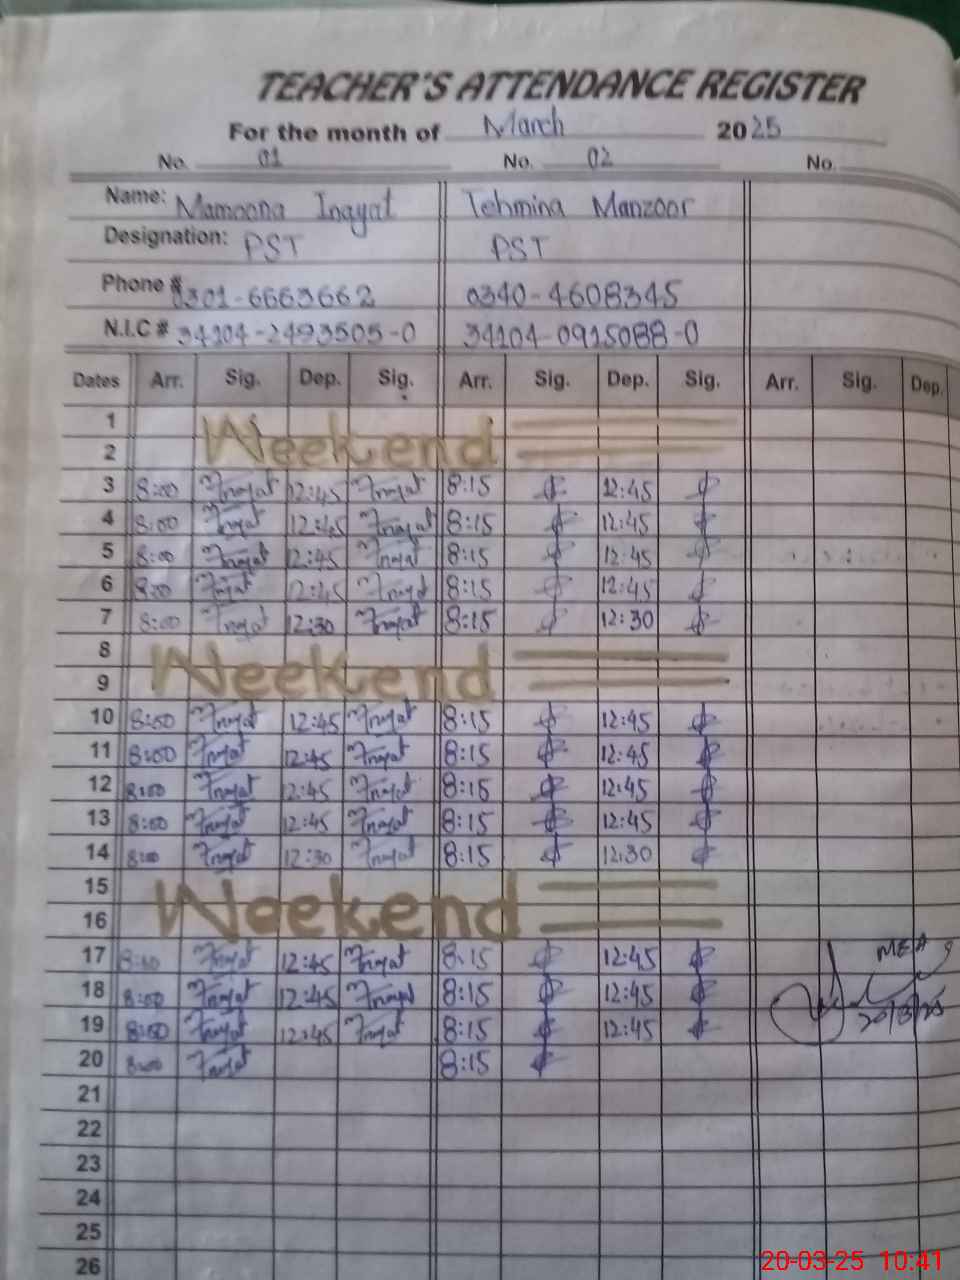 TEACHER'S ATTENDANCE REGISTER
For the month of March 2025
No. 01 No. 02 No.
Name: Mamoona Inayat Tehmina Manzoor
Designation: PST PST
Phone # 0301-6663662 0340-4608345
N.I.C # 34104-2493505-0 34104-0915088-0
Dates Arr. Sig. Dep. Sig. Arr. Sig. Dep. Sig. Arr. Sig. Dep.
1
Weekend
2
3 8:00 Inayat 12:45 Inayat 8:15 12:45
4 8:00 Inayat 12:45 Inayat 8:15 12:45
5 8:00 Inayat 12:45 Inayat 8:15 12:45
6 8:00 Inayat 12:45 Inayat 8:15 12:45
7 8:00 Inayat 12:30 Inayat 8:15 12:30
8
Weekend
9
10 8:00 Inayat 12:45 Inayat 8:15 12:45
11 8:00 Inayat 12:45 Inayat 8:15 12:45
12 8:00 Inayat 12:45 Inayat 8:15 12:45
13 8:00 Inayat 12:45 Inayat 8:15 12:45
14 8:00 Inayat 12:30 Inayat 8:15 12:30
15
Weekend
16
17 8:00 Inayat 12:45 Inayat 8:15 12:45 MEA
18 8:00 Inayat 12:45 Inayat 8:15 12:45
19 8:00 Inayat 12:45 Inayat 8:15 12:45 20/3/25
20 8:00 Inayat 8:15
21
22
23
24
25
26
20-03-25 10:41